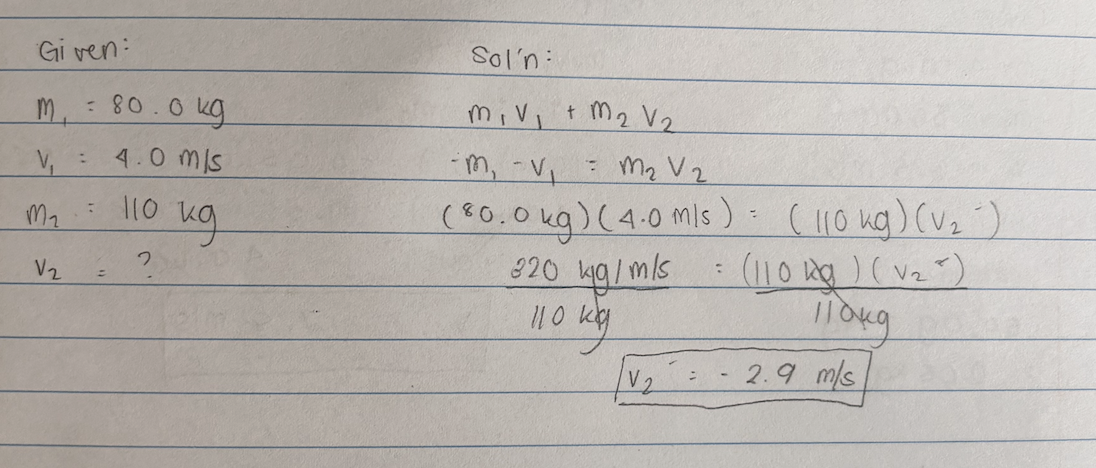 Given:
m₁ = 80.0 kg
v₁ = 4.0 m/s
m₂ = 110 kg
v₂ = ?
Sol'n:
m₁v₁ + m₂v₂
-m₁ -v₁ = m₂v₂
(80.0 kg)(4.0 m/s) = (110 kg)(v₂⁻)
320 kg/m/s = (110 kg)(v₂⁻)
110 kg 110kg
v₂⁻ = - 2.9 m/s